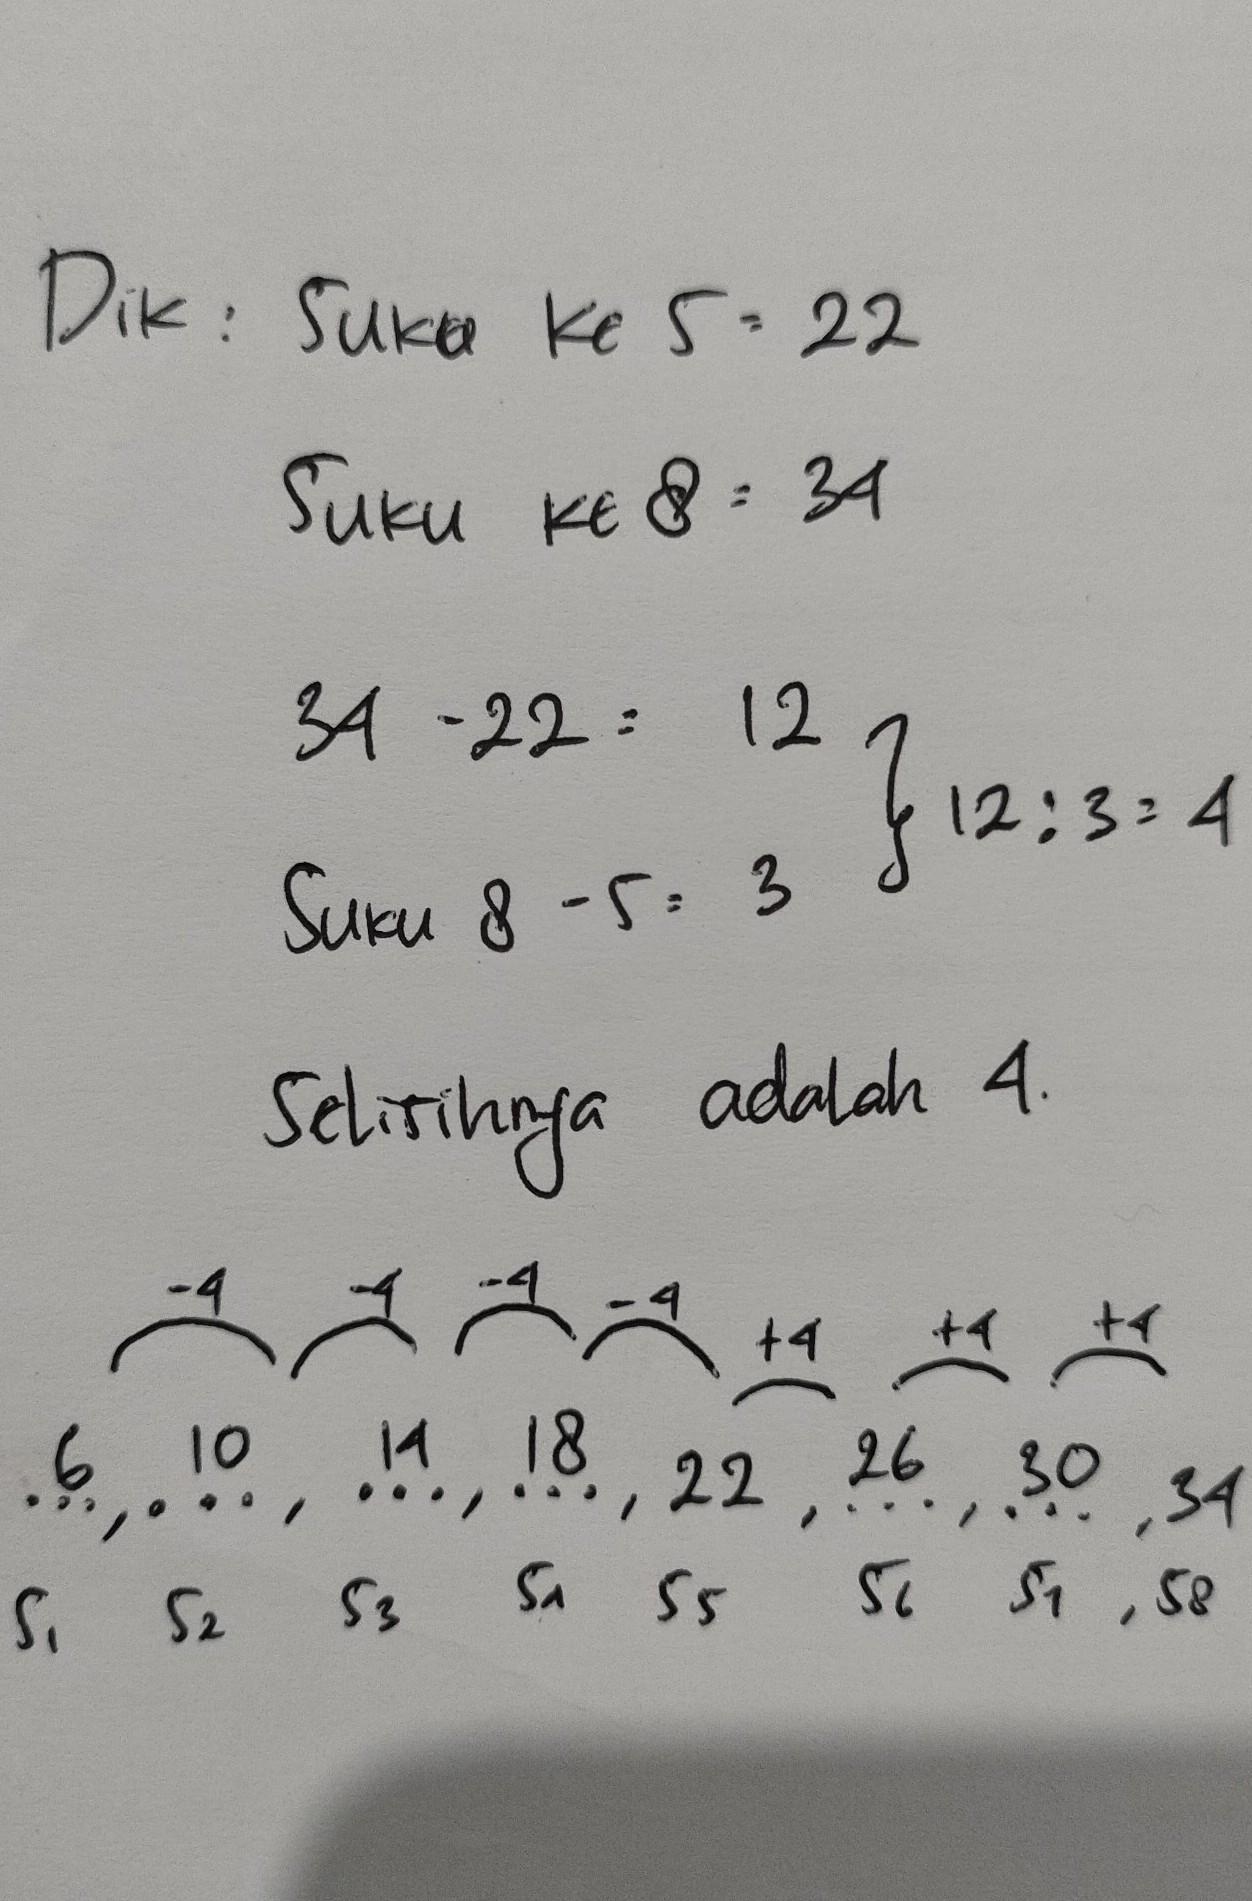 Dik : Suku ke 5 = 22
Suku ke 8 = 34
34 - 22 = 12
12 : 3 = 4
Suku 8 - 5 = 3
Selisihnya adalah 4.
-4 -4 -4 -4 +4 +4 +4
6, 10, 14, 18, 22, 26, 30, 34
S1 S2 S3 S4 S5 S6 S7, S8